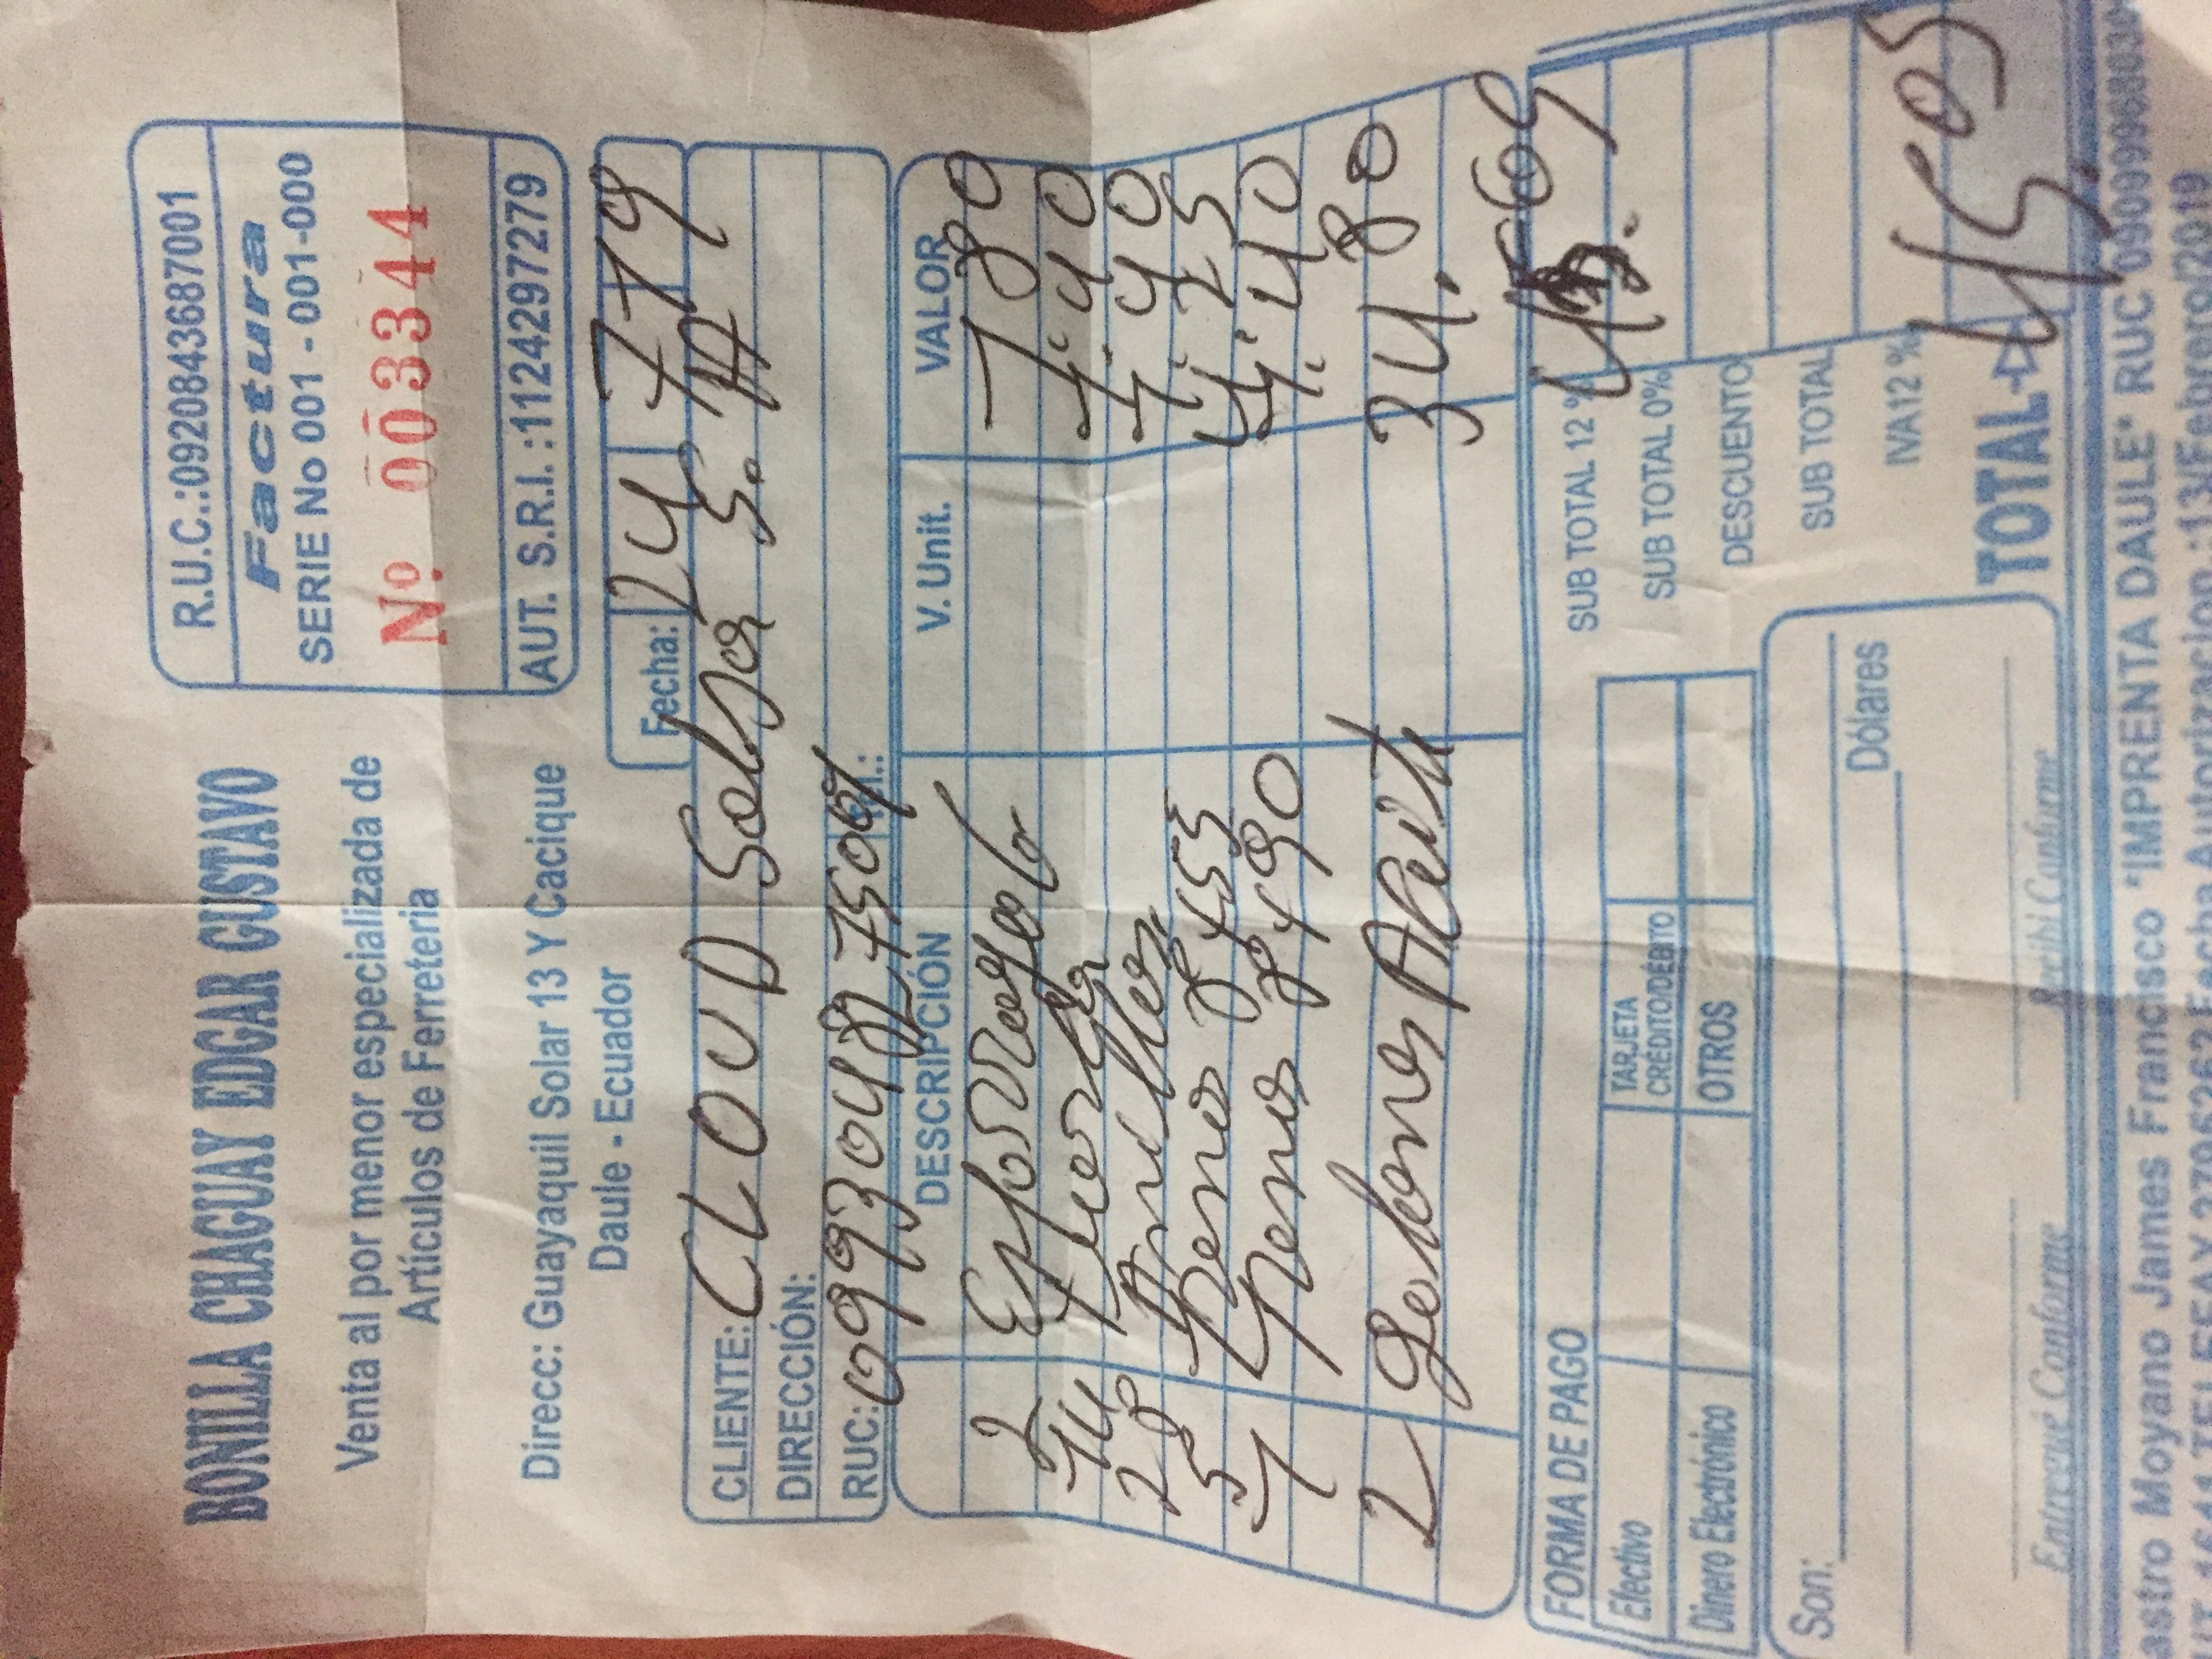 BONILLA CHAGUAY EDGAR GUSTAVO
Venta al por menor especializada de
Artículos de Ferreteria
Direcc: Guayaquil Solar 13 Y Cacique
Daule - Ecuador
R.U.C.:0920843687001
Factura
SERIE No 001 - 001-000
Nº 003344
AUT. S.R.I. :1124297279
Fecha: 24 7 19
CLIENTE: CLOUD S. A
DIRECCIÓN:
RUC: 0993048275001 Tel.:
DESCRIPCIÓN V. Unit. VALOR
2 1 80
14 tuerca 1.40
28 Anillos 1.40
5 Pernos 8x55 4.25
1 Pernos 8x90 1.40
2 galones Aceite 34.80
FORMA DE PAGO
Efectivo TARJETA CRÉDITO/DÉBITO
Dinero Electrónico OTROS
SUB TOTAL 12 %
SUB TOTAL 0%
DESCUENTO
SUB TOTAL
IVA12 %
TOTAL 45.05
Son:
Dólares
Entregué Conforme Recibi Conforme
astro Moyano James Francisco "IMPRENTA DAULE" RUC
1641 TELEFAX 2795262 Fecha Autorizacion :13/Febrero/2019